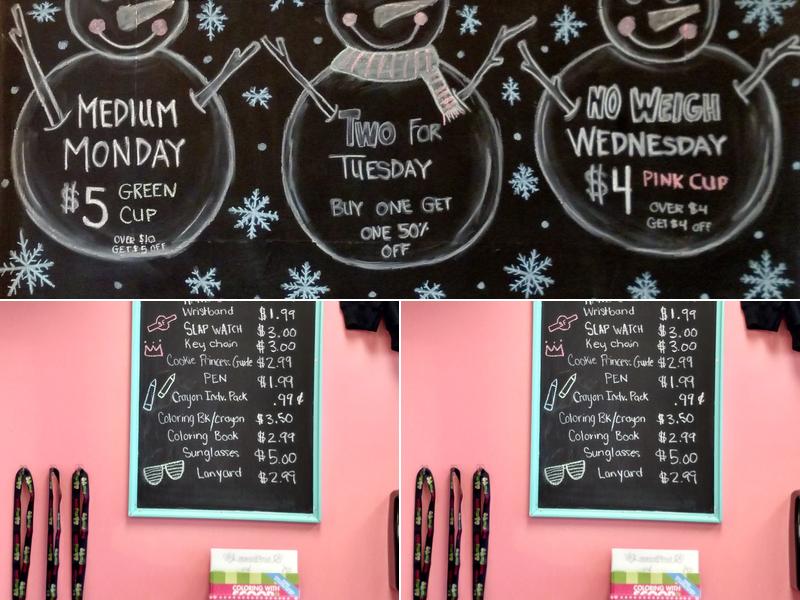 MEDIUM
MONDAY
$5 GREEN
CUP
OVER $10
GET $5 OFF
TWO FOR
TUESDAY
BUY ONE GET
ONE 50%
OFF
NO WEIGH
WEDNESDAY
$4 PINK CUP
OVER $4
GET $4 OFF
Wristband $1.99
SLAP WATCH $3.00
Key chain $3.00
Cookie Princess Guide $2.99
PEN $1.99
Crayon Indv. Pack .99¢
Coloring Bk/crayon $3.50
Coloring Book $2.99
Sunglasses $5.00
Lanyard $2.99
COLORING WITH
Wristband $1.99
SLAP WATCH $3.00
Key chain $3.00
Cookie Princess Guide $2.99
PEN $1.99
Crayon Indv. Pack .99¢
Coloring Bk/crayon $3.50
Coloring Book $2.99
Sunglasses $5.00
Lanyard $2.99
COLORING WITH